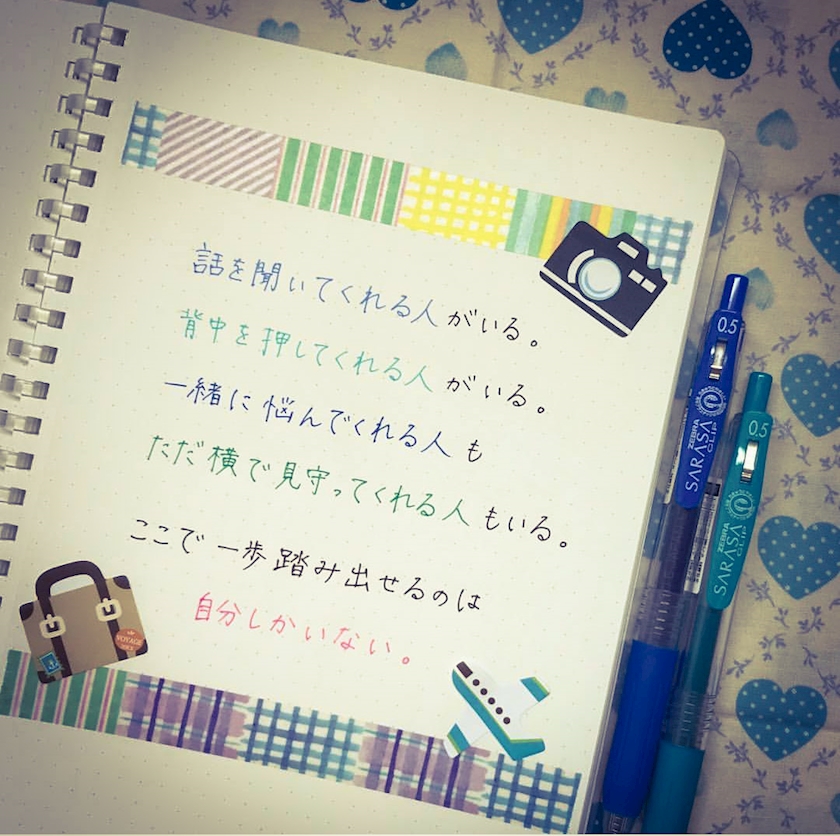 話を聞いてくれる人がいる。
背中を押してくれる人がいる。
一緒に悩んでくれる人も
ただ横で見守ってくれる人もいる。
ここで一歩踏み出せるのは
自分しかいない。
VOYAGE
0.5
ZEBRA
SARASA
CLIP
0.5
ZEBRA
SARASA
CLIP